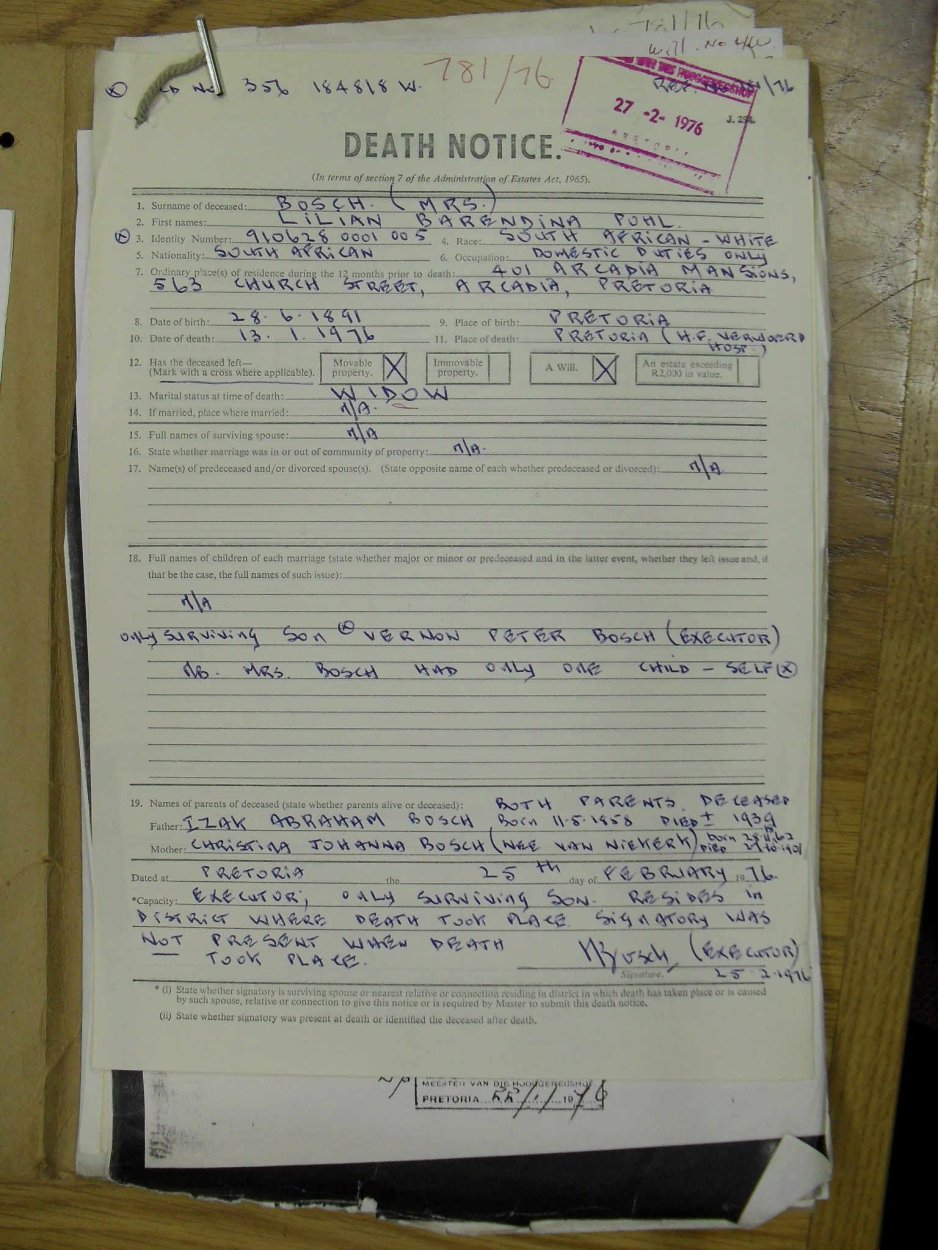 781/76
Will. No
ID No. 356 184818 W.
781/76.
27 -2- 1976
PRETORIA
J. 294
DEATH NOTICE.
(In terms of section 7 of the Administration of Estates Act, 1965).
1. Surname of deceased: BOSCH. (MRS.)
2. First names: LILIAN BARENDINA POHL.
3. Identity Number: 910628 0001 005 4. Race: SOUTH AFRICAN - WHITE
5. Nationality: SOUTH AFRICAN 6. Occupation: DOMESTIC DUTIES ONLY
7. Ordinary place(s) of residence during the 12 months prior to death: 401 ARCADIA MANSIONS,
563 CHURCH STREET, ARCADIA, PRETORIA
8. Date of birth: 28.6.1891 9. Place of birth: PRETORIA
10. Date of death: 13.1.1976 11. Place of death: PRETORIA (H.F. VERWOERD
HOSP.)
12. Has the deceased left— Movable Immovable A Will. An estate exceeding
(Mark with a cross where applicable). property. X property. X R2,000 in value.
13. Marital status at time of death: WIDOW
14. If married, place where married: N/A.
15. Full names of surviving spouse: N/A
16. State whether marriage was in or out of community of property: N/A.
17. Name(s) of predeceased and/or divorced spouse(s). (State opposite name of each whether predeceased or divorced): N/A
18. Full names of children of each marriage (state whether major or minor or predeceased and in the latter event, whether they left issue and, if
that be the case, the full names of such issue):
N/A
ONLY SURVIVING SON VERNON PETER BOSCH (EXECUTOR)
NB. MRS. BOSCH HAD ONLY ONE CHILD - SELF
19. Names of parents of deceased (state whether parents alive or deceased): BOTH PARENTS DECEASED
Father: IZAK ABRAHAM BOSCH Born 11-5-1858 DIED ± 1939
Mother: CHRISTINA JOHANNA BOSCH (NEE VAN NIEKERK) born
DIED
Dated at PRETORIA the 25th day of FEBRUARY 1976
*Capacity: EXECUTOR, ONLY SURVIVING SON. RESIDES IN
DISTRICT WHERE DEATH TOOK PLACE. SIGNATORY WAS
NOT PRESENT WHEN DEATH
TOOK PLACE.
VBosch (EXECUTOR)
Signature. 25.2.1976
* (i) State whether signatory is surviving spouse or nearest relative or connection residing in district in which death has taken place or is caused
by such spouse, relative or connection to give this notice or is required by Master to submit this death notice.
(ii) State whether signatory was present at death or identified the deceased after death.
MEESTER VAN DIE HOOGGEREGSHOF
PRETORIA 1976